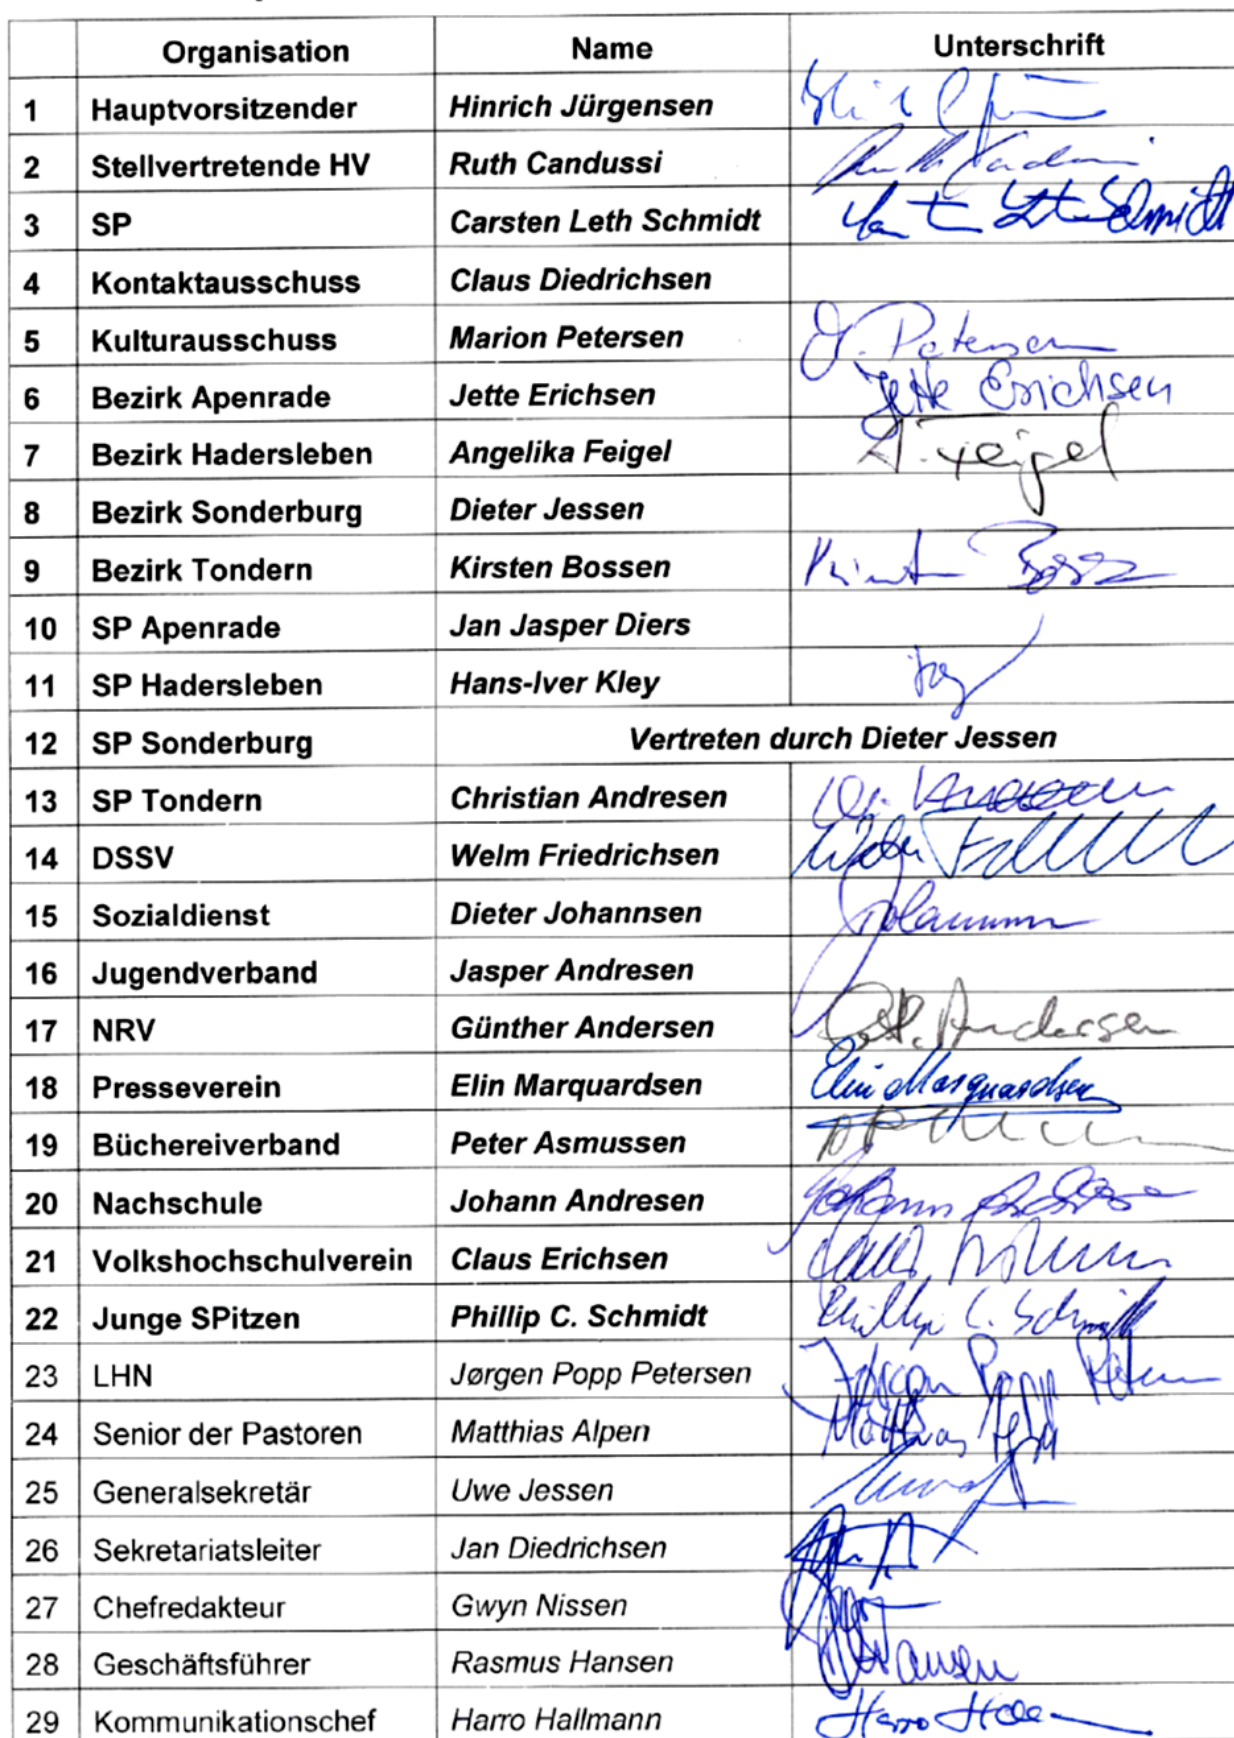 Organisation Name Unterschrift
1 Hauptvorsitzender Hinrich Jürgensen
2 Stellvertretende HV Ruth Candussi
3 SP Carsten Leth Schmidt
4 Kontaktausschuss Claus Diedrichsen
5 Kulturausschuss Marion Petersen Petersen
6 Bezirk Apenrade Jette Erichsen Jette Erichsen
7 Bezirk Hadersleben Angelika Feigel A. Feigel
8 Bezirk Sonderburg Dieter Jessen
9 Bezirk Tondern Kirsten Bossen
10 SP Apenrade Jan Jasper Diers
11 SP Hadersleben Hans-Iver Kley
12 SP Sonderburg Vertreten durch Dieter Jessen
13 SP Tondern Christian Andresen
14 DSSV Welm Friedrichsen
15 Sozialdienst Dieter Johannsen
16 Jugendverband Jasper Andresen
17 NRV Günther Andersen Andersen
18 Presseverein Elin Marquardsen Elin Marquardsen
19 Büchereiverband Peter Asmussen
20 Nachschule Johann Andresen Johann
21 Volkshochschulverein Claus Erichsen
22 Junge SPitzen Phillip C. Schmidt Phillip C. Schmidt
23 LHN Jørgen Popp Petersen Jørgen Popp
24 Senior der Pastoren Matthias Alpen Matthias
25 Generalsekretär Uwe Jessen
26 Sekretariatsleiter Jan Diedrichsen
27 Chefredakteur Gwyn Nissen
28 Geschäftsführer Rasmus Hansen
29 Kommunikationschef Harro Hallmann Harro